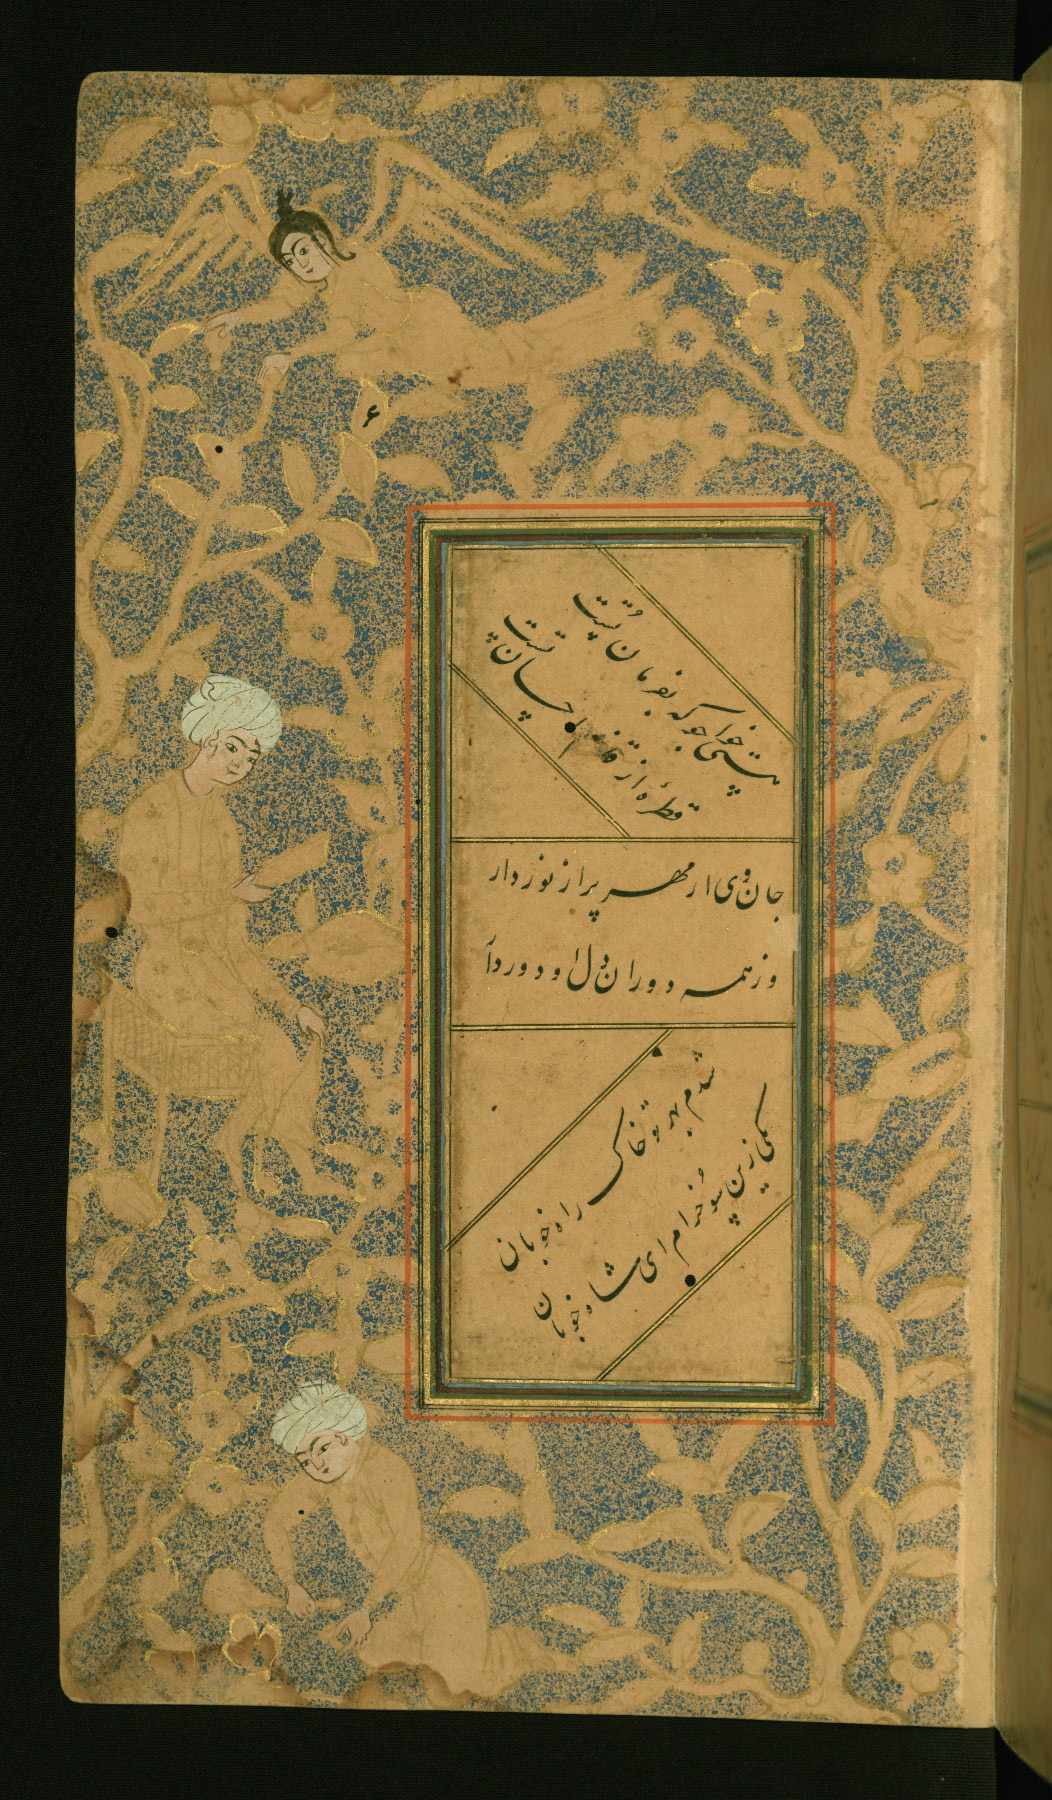 ۶
هستی خواجو که بفرمان تست
قطرهٔ از قلزم احسان تست
جان وی از مهر پر از نور دار
وز همه دوران دل او دور دار
شدم بهر تو خاک راه خوبان
یکی زین سو خرام ای شاه خوبان